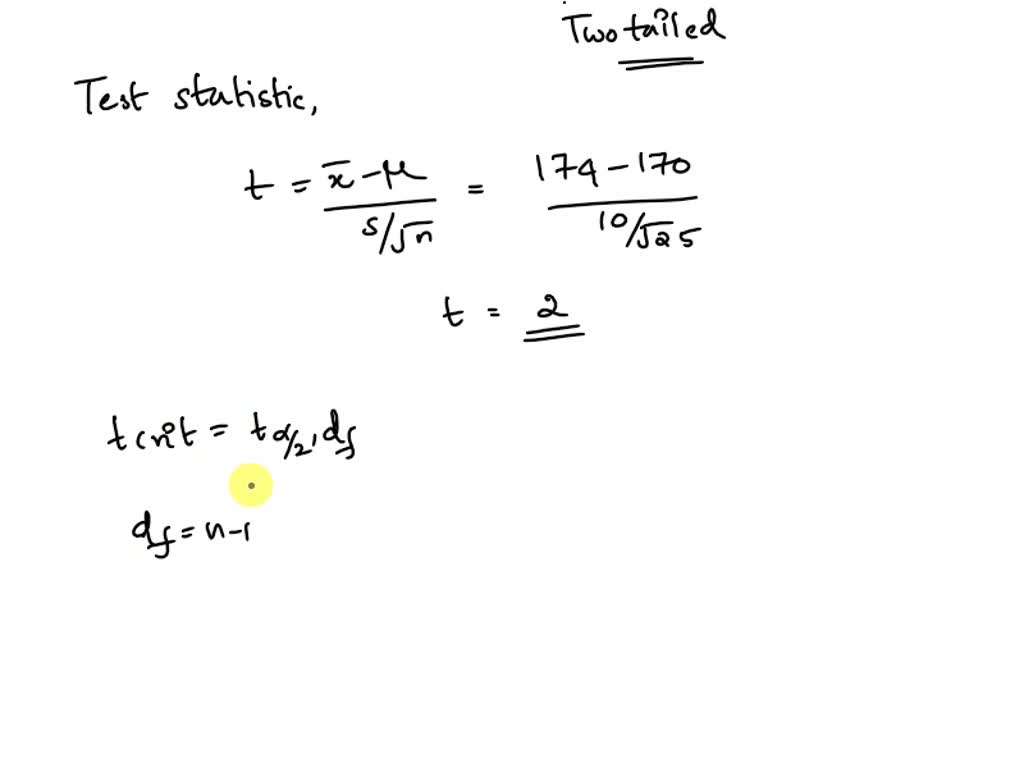 Two tailed
Test statistic,
t = x̄ - μ / s/√n = 174 - 170 / 10/√25
t = 2
tcrit = tα/2, df
df = n-1